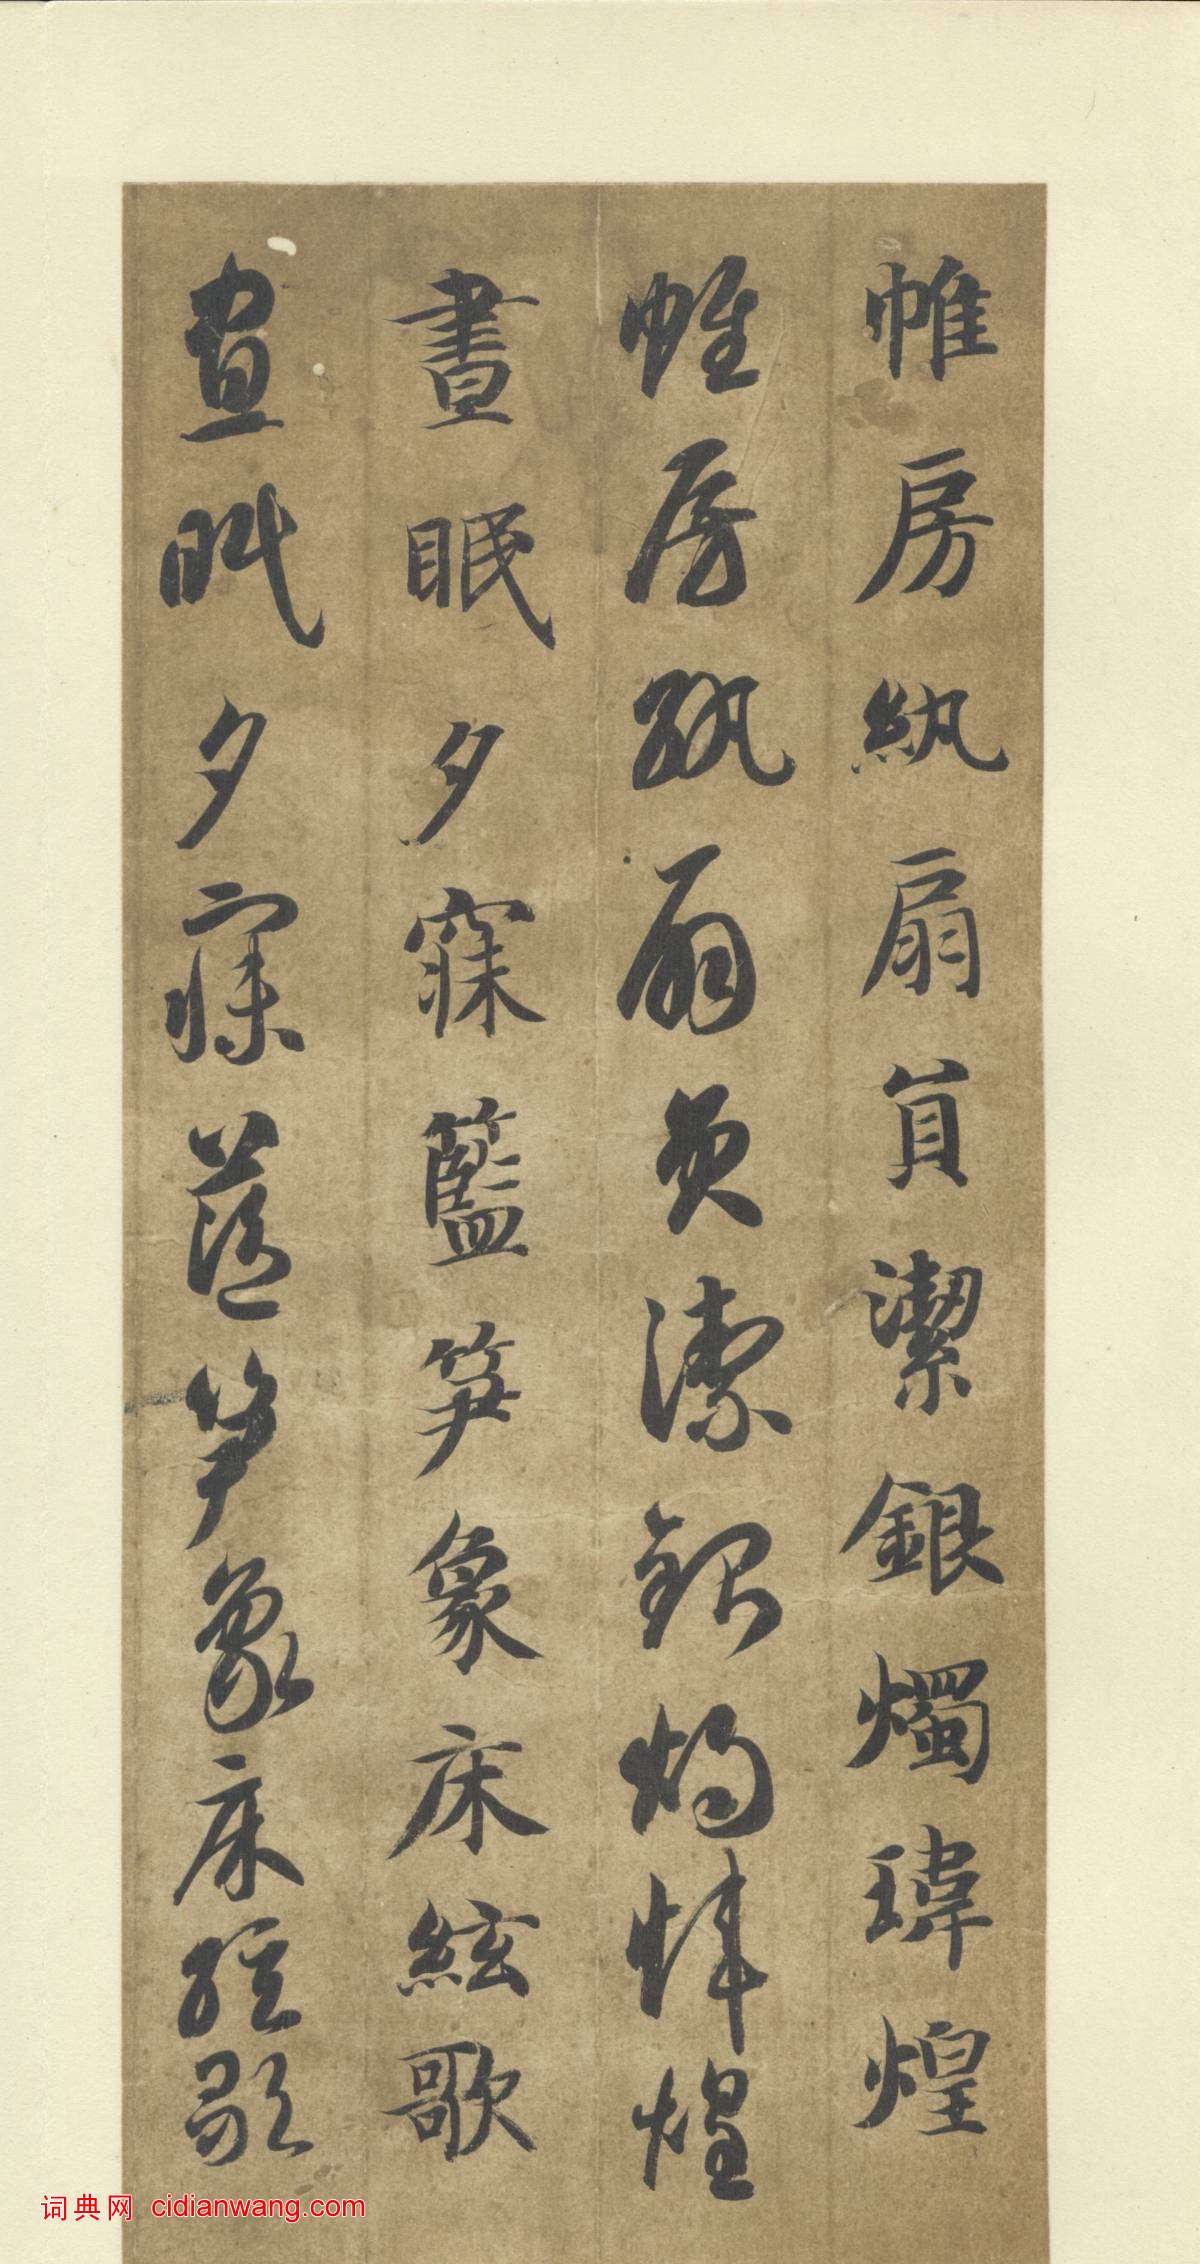 帷房紈扇員潔銀燭瑋煌
帷房紈扇員潔銀燭煒煌
晝眠夕寐籃笋象床絃歌
晝眠夕寐藍笋象床絃歌
词典网 cidianwang.com